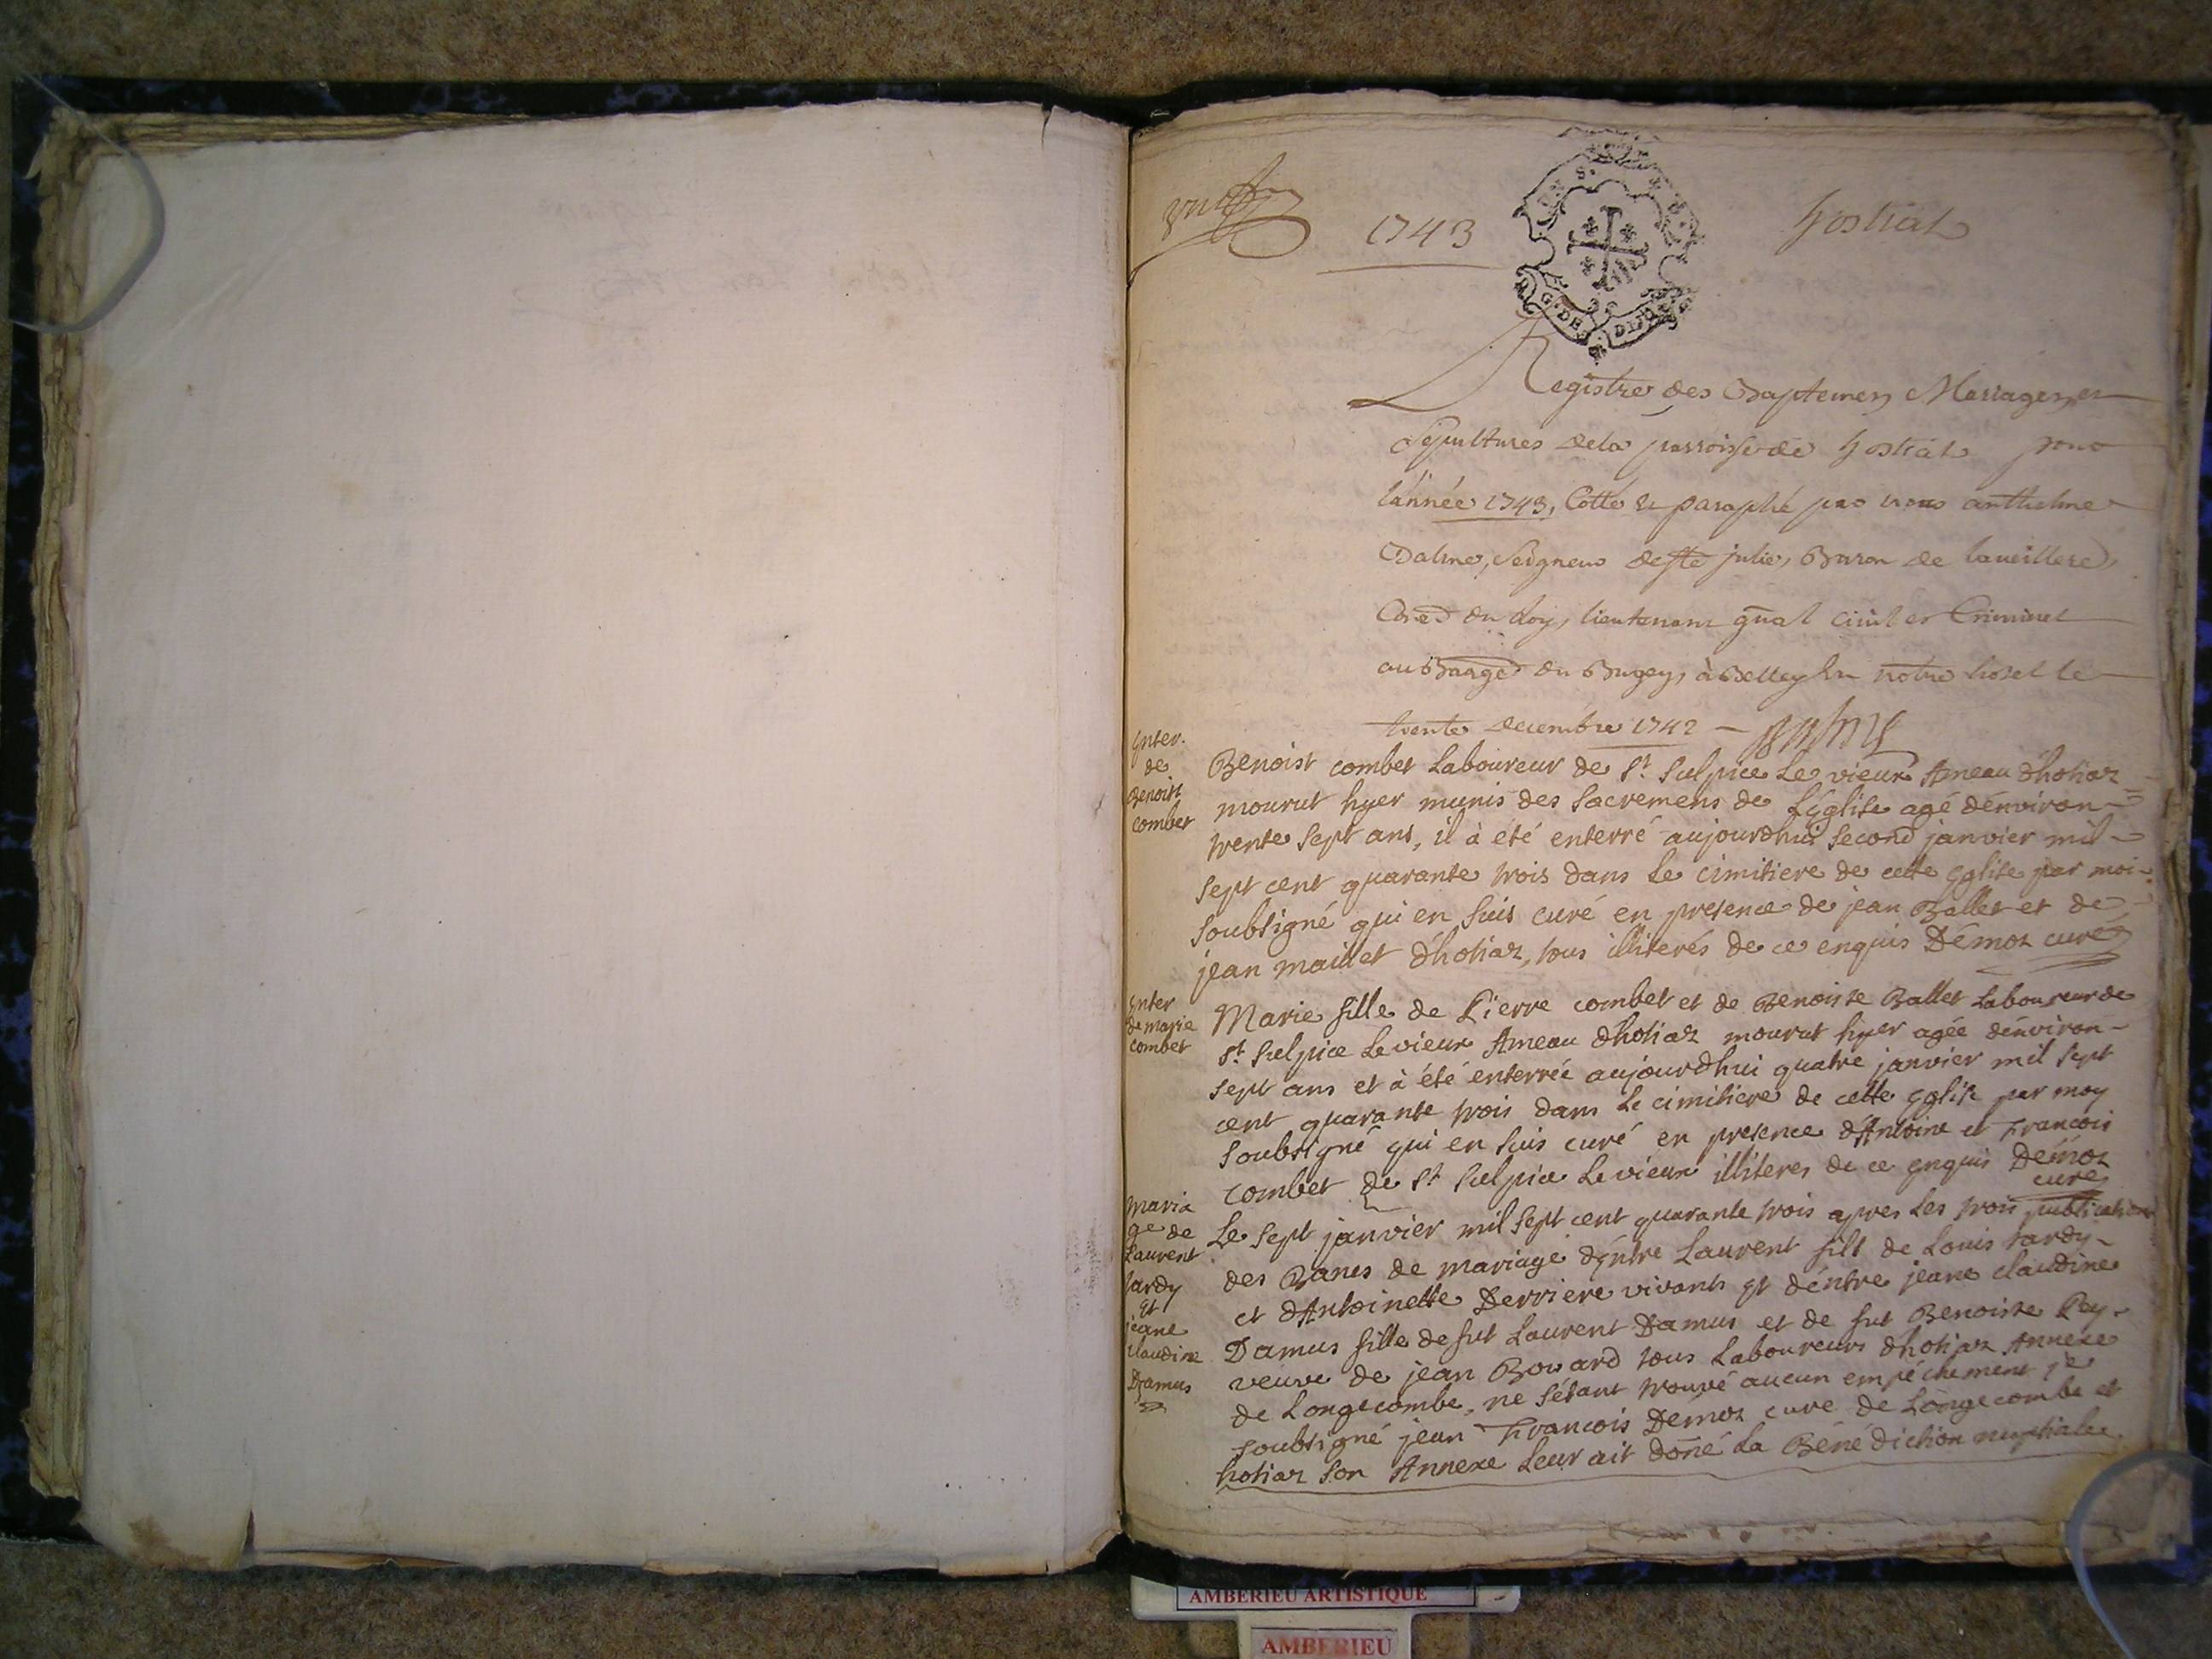 1743
hostiat
Registre des Baptemes, Mariages, et
Sepultures dela parroisse de hostiat pour
lannée 1743, Cotté & paraphé par nous anthelme
Dalme, Seigneur de ste julie, Baron de
du Roy, lieutenant gñal civil et Criminel
au Baage du Bugey, à Belley En notre hotel le
trente decembre 1742 –
Enter.
de
Benoist
combet
Benoist combet Laboureur de St. Sulpice Le vieux Ameau d'hotiaz
mourut hyer munis des Sacremens de L'Eglise agé d'environ
trente sept ans, il à été enterré aujourdhui second janvier mil
sept cent quarante trois dans Le cimitiere de cette Eglise par moi
soubsigné qui en suis curé en presence de jean Ballet et de
jean maillet d'hotiaz, tous illiterés de ce enquis Démoz curé
Enter
de marie
combet
Marie fille de Pierre combet et de Benoiste Ballet Laboureur de
St. Sulpice Le vieux Ameau dhotiaz mourut hyer agée d'environ
sept ans et à été enterrée aujourdhui quatre janvier mil sept
cent quarante trois dans Le cimitiere de cette Eglise par moy
soubsigné qui en suis curé en presence d'Antoine et Francois
combet de St Sulpice Le vieux illiteres de ce enquis Démoz
curé
maria
ge de
Laurent
tardy
Et
jeane
claudine
Damus
Le sept janvier mil sept cent quarante trois apres Les trois publications
des Bancs de mariage d'Entre Laurent fils de Louis tardy
et d'Antoinette Derriere vivants Et d'entre jeane claudine
Damus fille de fut Laurent Damus et de fut Benoiste Rey
veuve de jean Bovard tous Laboureurs dhotiaz Annexe
de Longecombe, ne s'étant trouvé aucun empéchement je
soubsigné jean Francois Démoz curé de Longecombe et
hotiaz son Annexe Leur ait doné La Bénédiction nuptiale
AMBERIEU ARTISTIQUE
AMBERIEU